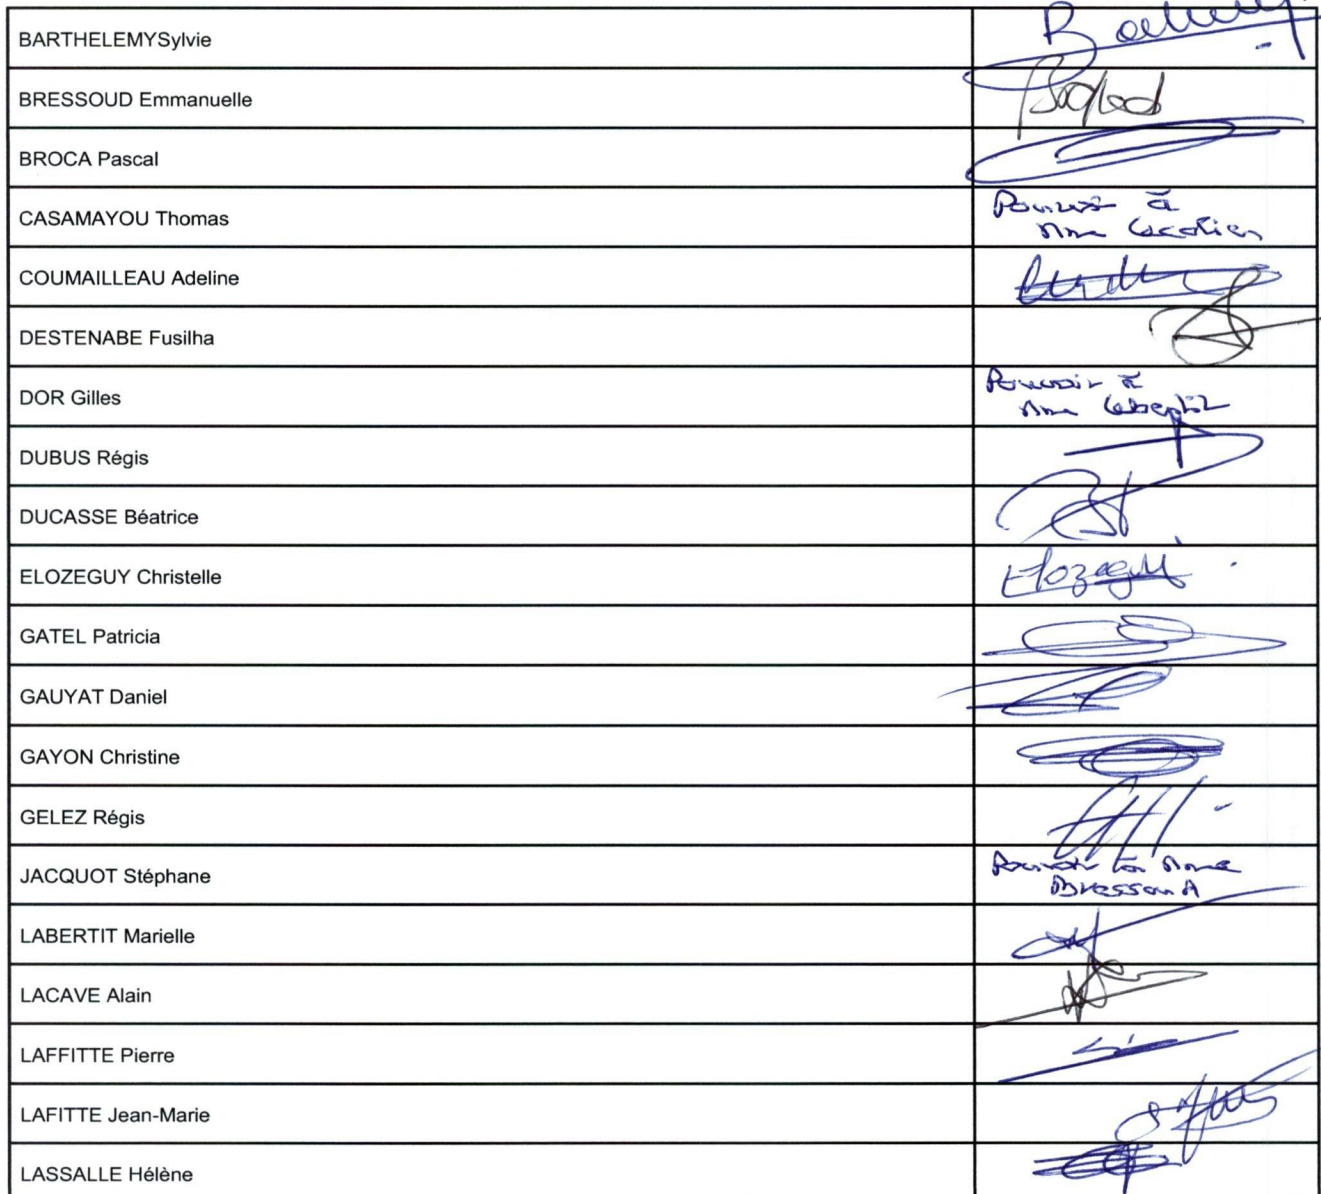 BARTHELEMYSylvie
BRESSOUD Emmanuelle
BROCA Pascal
CASAMAYOU Thomas
Pouvoir à
Mme
COUMAILLEAU Adeline
DESTENABE Fusilha
DOR Gilles
Pouvoir à
Mme
DUBUS Régis
DUCASSE Béatrice
ELOZEGUY Christelle
Elozeguy
GATEL Patricia
GAUYAT Daniel
GAYON Christine
GELEZ Régis
JACQUOT Stéphane
Pouvoir à Mme
Bressoud
LABERTIT Marielle
LACAVE Alain
LAFFITTE Pierre
LAFITTE Jean-Marie
LASSALLE Hélène